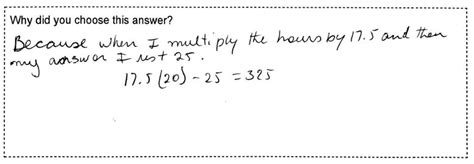 Why did you choose this answer?
Because when I multiply the hours by 17.5 and then
my answer I rest 25.
17.5(20) - 25 = 325